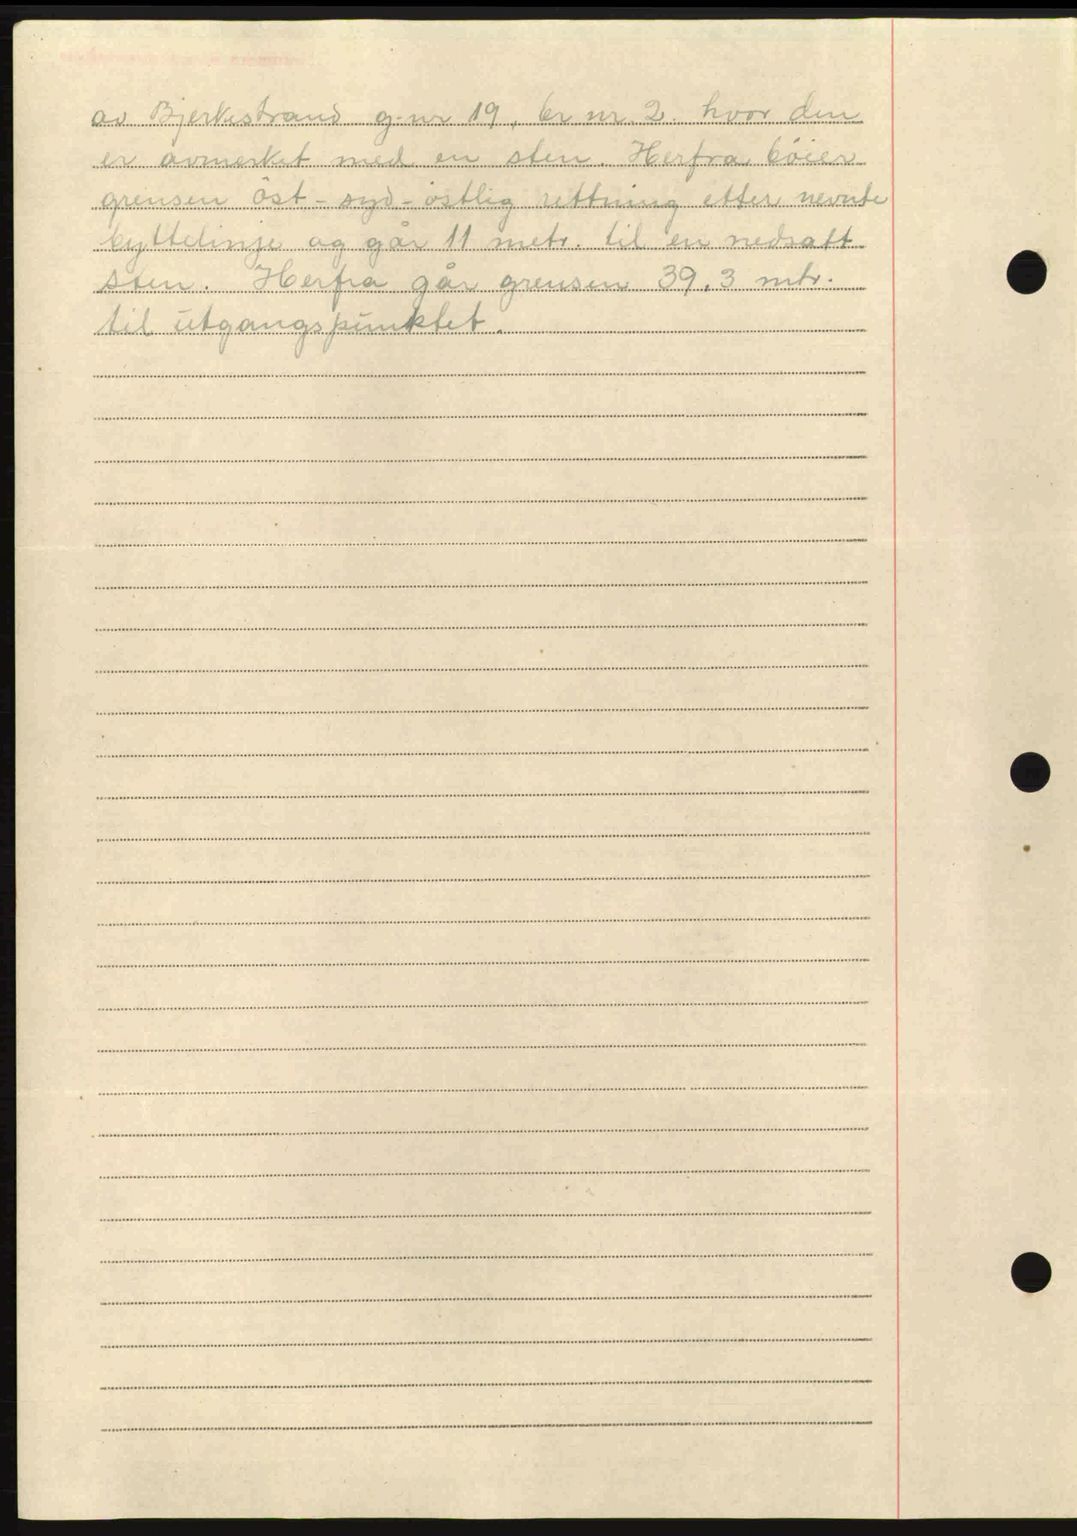 av Bjerkestrand g-nr 19, br nr. 2. hvor den
er avmerket med en sten. Herfra böier
grensen öst-syd-östlig rettning etter nevnte
byttelinje og går 11 metr. til en nedsatt
sten. Herfra går grensen 39,3 mtr.
til utgangspunktet.